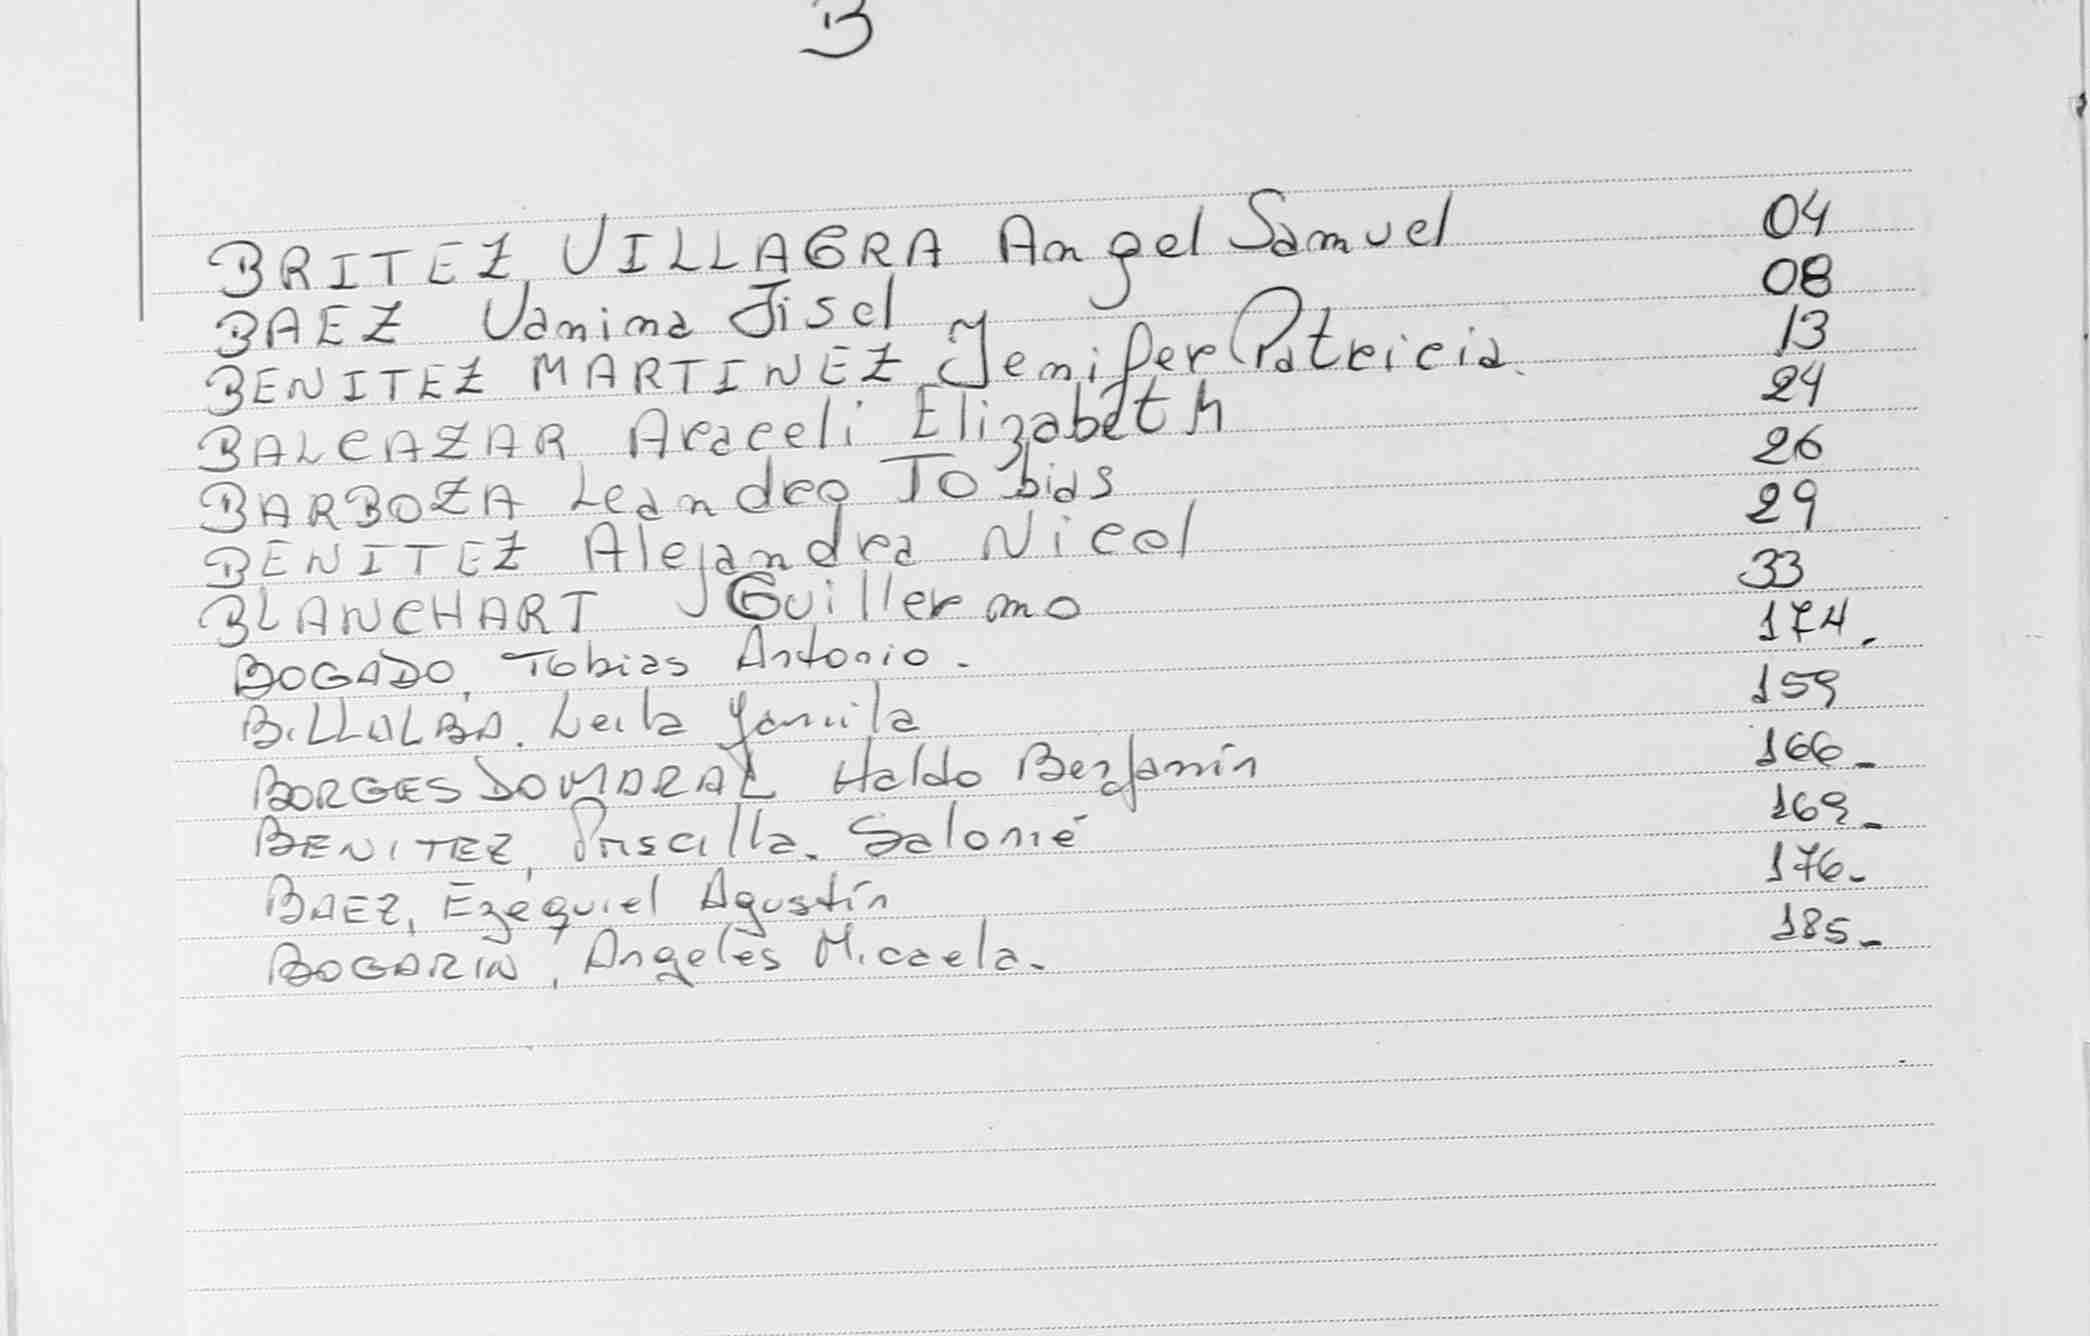 B
BRITEZ VILLAGRA Angel Samuel 04
BAEZ Vanina Jisel 08
BENITEZ MARTINEZ Jenifer Patricia. 13
BALCAZAR Araceli Elizabeth 24
BARBOZA Leandro Tobias 26
BENITEZ Alejandra Nicol 29
BLANCHART Guillermo 33
BOGADO, Tobias Antonio. 174.
BILLALBA. Leila Yamila 159
BORGES DO Haldo Benjamín 166-
BENITEZ, Priscilla. Salomé 169-
BAEZ, Ezequiel Agustín 176-
BOGARIN, Angeles Micaela. 185-